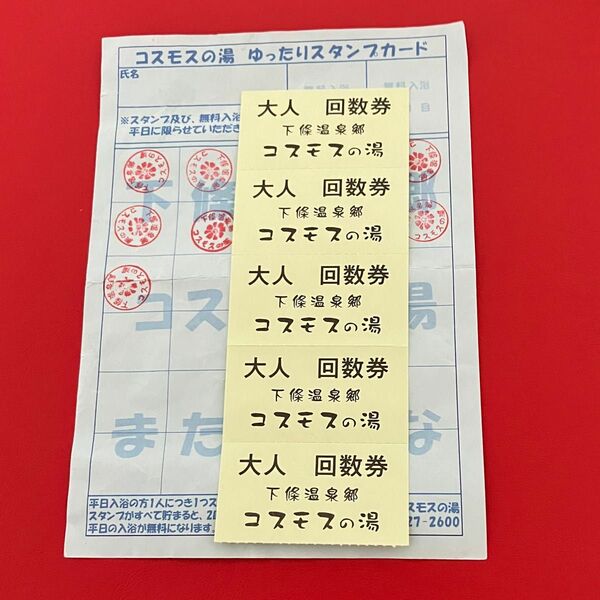 コスモスの湯 ゆったりスタンプカード
氏名
※スタンプ及び、無料入浴
平日に限らせていただき
大人 回数券
下條温泉郷
コスモスの湯
大人 回数券
下條温泉郷
コスモスの湯
大人 回数券
下條温泉郷
コスモスの湯
大人 回数券
下條温泉郷
コスモスの湯
大人 回数券
下條温泉郷
コスモスの湯
下條
コス 湯
また な
平日入浴の方1人につき1つス
スタンプがすべて貯まると、
平日の入浴が無料になります。
スモスの湯
27-2600